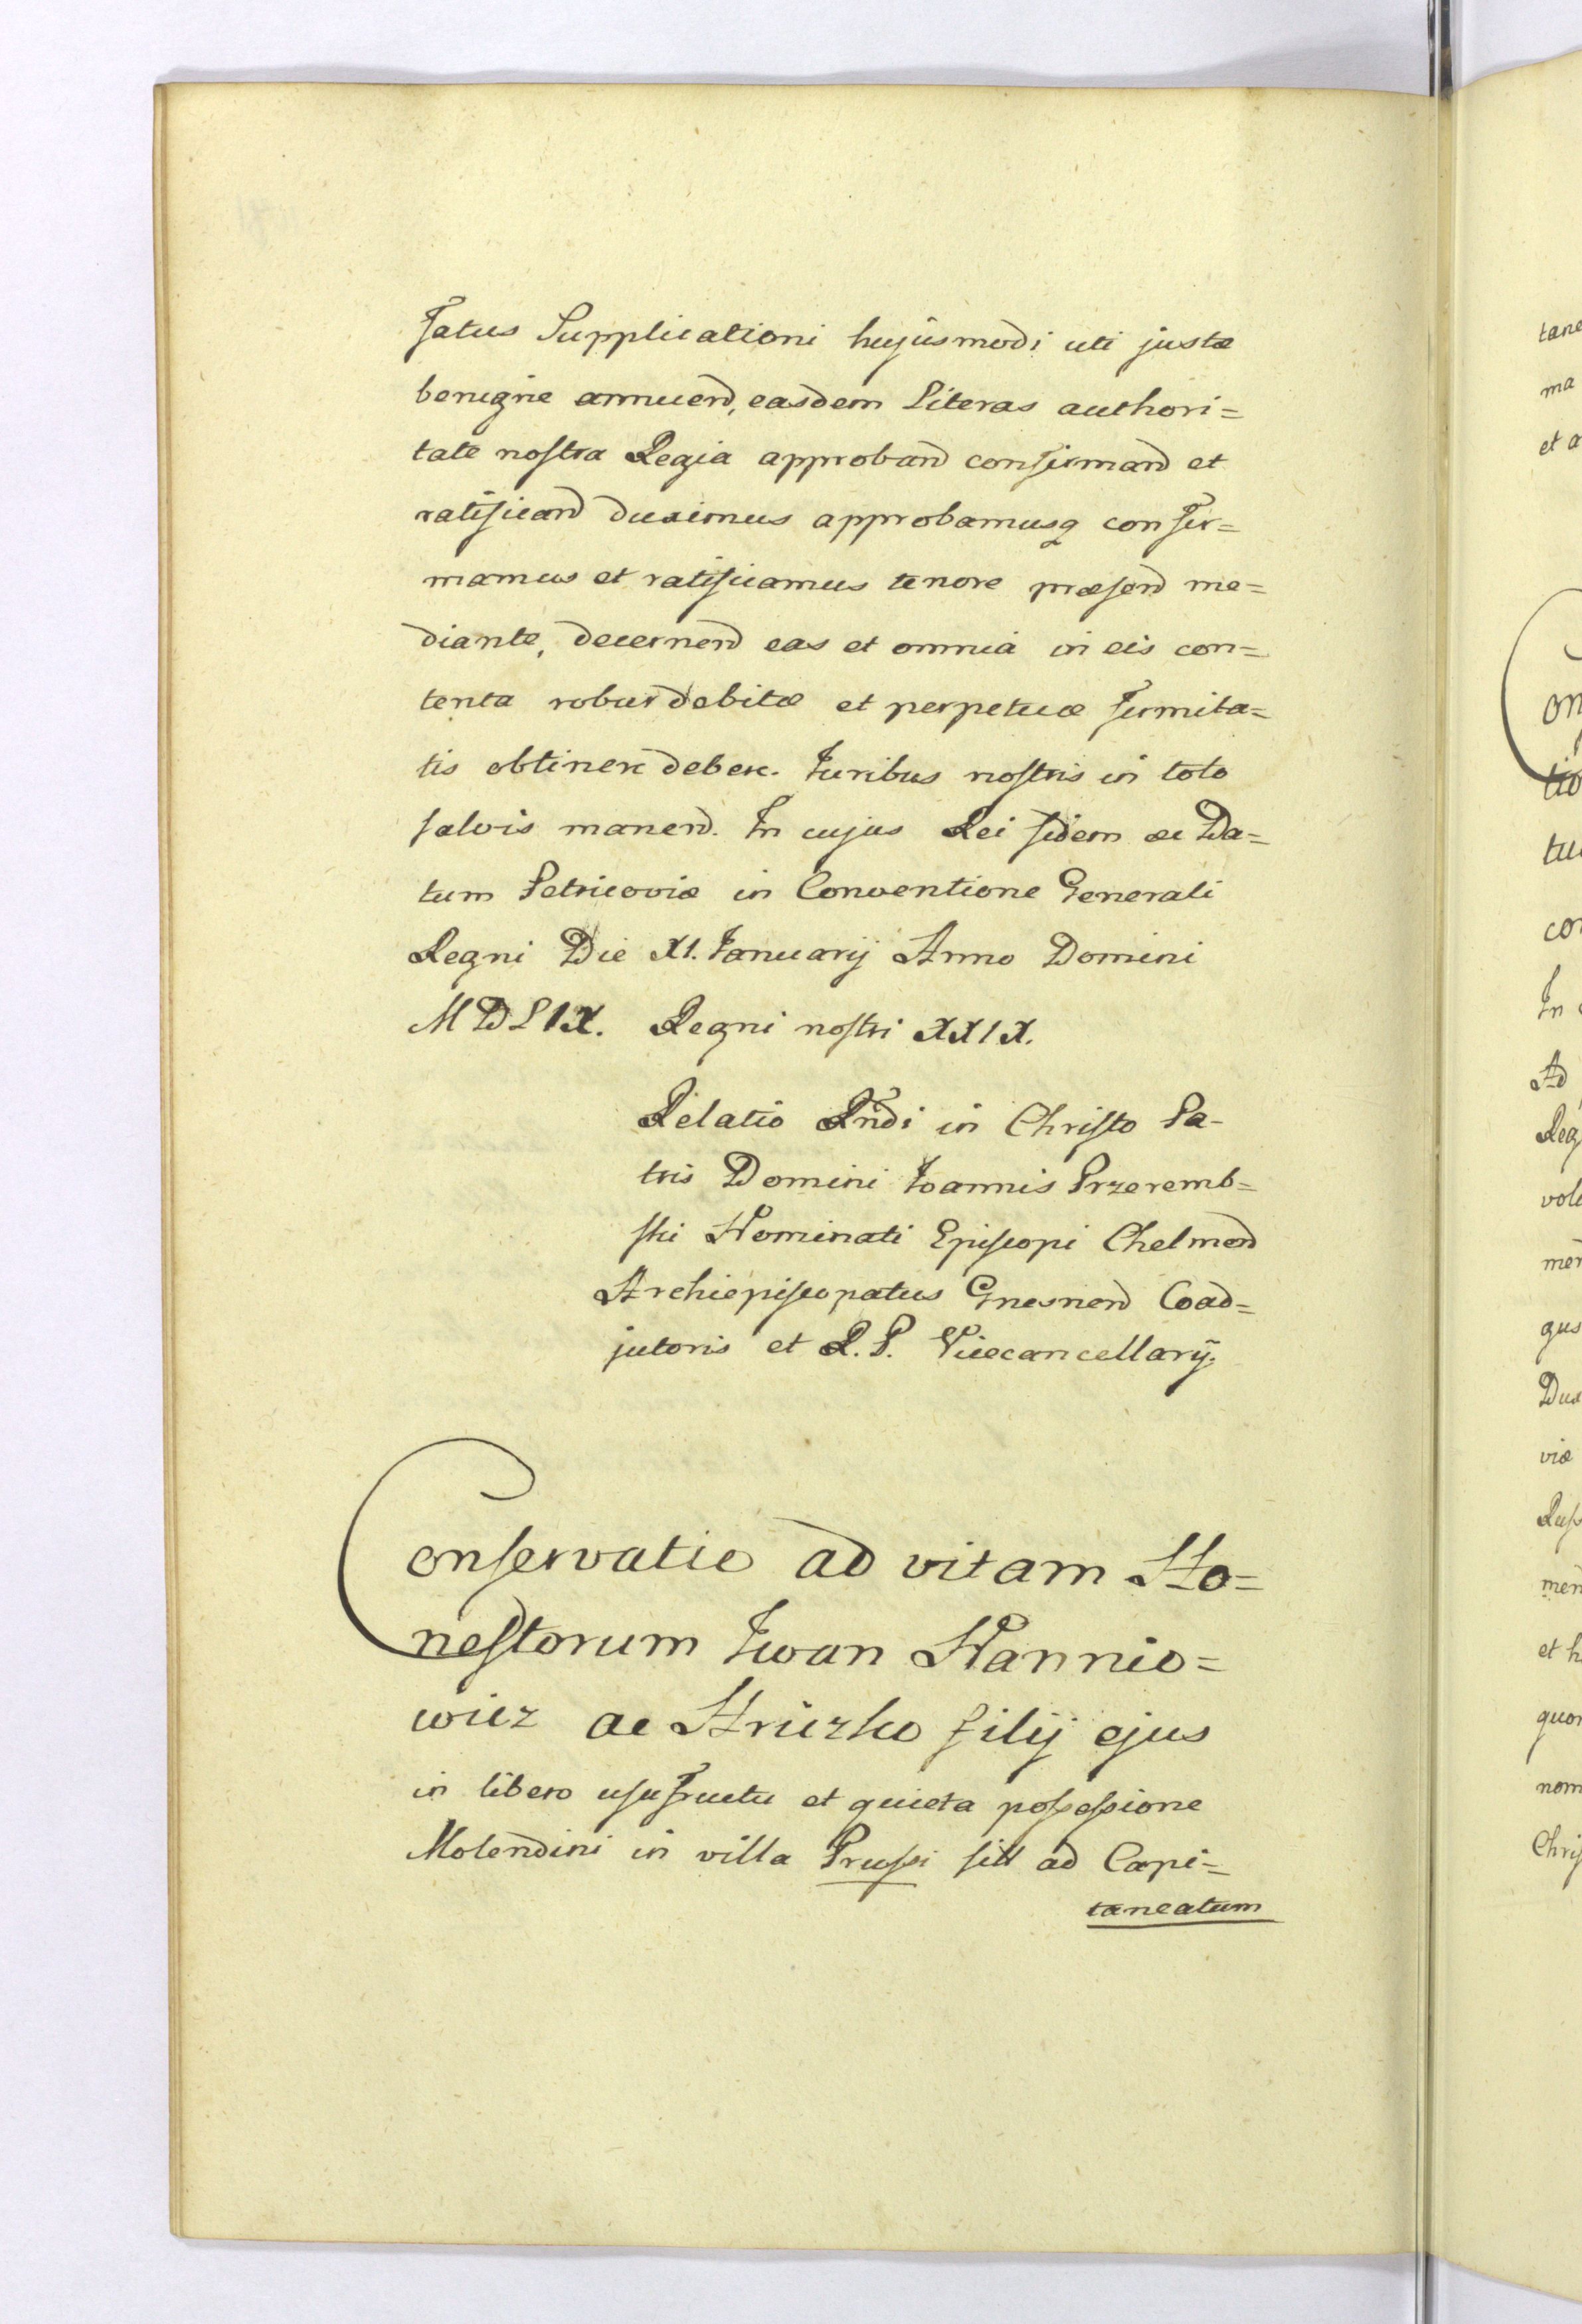 fatus Supplicationi hujusmodi uti justæ
benigne annuend, easdem Literas authori=
tate nostra Regia approband confirmand et
ratificand duximus approbamusq confir=
mamus et ratificamus tenore præsend me=
diante, decernend eas et omnia in eis con=
tenta robur debitæ et perpetuæ firmita=
tis obtinere debere. Iuribus nostris in toto
salvis manend. In cujus Rei fidem &c Da=
tum Petricoviæ in Conventione Generali
Regni Die XI. Ianuarij Anno Domini
MDLIX. Regni nostri XXIX.
Relatio Rndi in Christo Pa-
tris Domini Ioannis Przeremb=
ski Nominati Episcopi Chelmen
Archiepiscopatus Gnesnen Coad=
jutoris et R. P. Vicecancellarij.
Conservatio ad vitam Ho=
nestorum Iwan Hannio=
wicz ac Hriczko filij ejus
in libero usufructu et quieta possessione
Molendini in villa Prussi sitt ad Capi=
taneatum
tane
ma
et a
on
tio
tu
con
In
Ad
Reg
vol
men
gus
Dux
viæ
Rus
men
et h
quo
nom
Chris